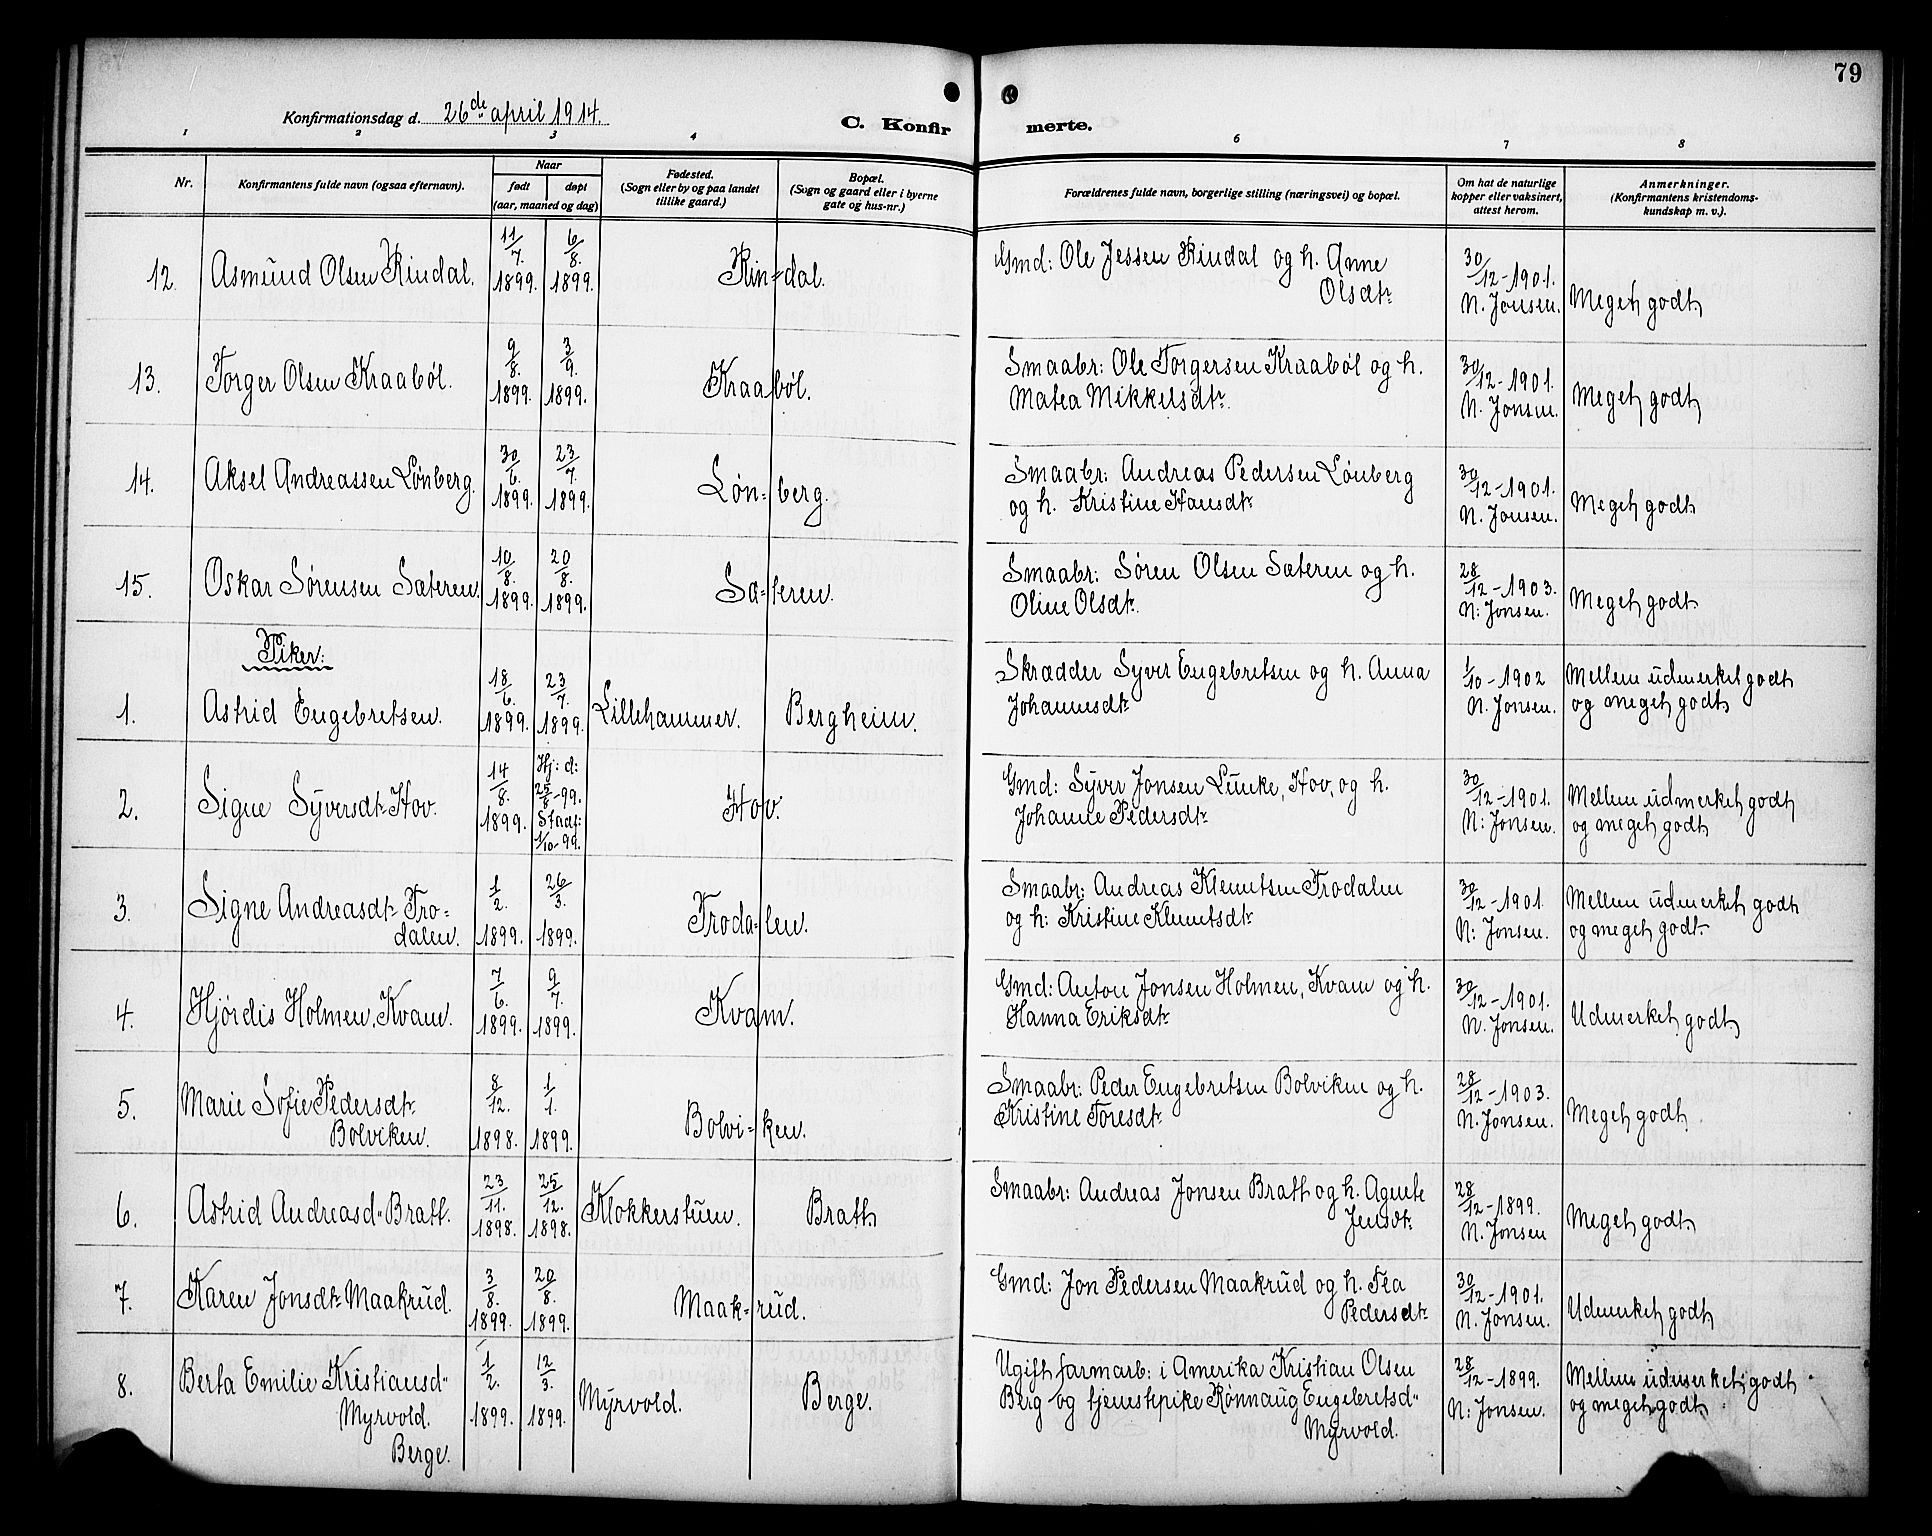 79
Konfirmationsdag d. 26de april 1914.
C. Konfirmerte.
1 2 3 4 6 7 8
Nr. Konfirmantens fulde navn (ogsaa efternavn). Naar født døpt (aar, maaned og dag) Fødested. (Sogn eller by og paa landet tillike gaard.) Bopæl. (Sogn og gaard eller i byerne gate og hus-nr.) Forældrenes fulde navn, borgerlige stilling (næringsvei) og bopæl. Om hat de naturlige kopper eller vaksinert, attest herom. Anmerkninger. (Konfirmantens kristendoms-kundskap m. v.).
12. Asmund Olsen Rindal. 11/7. 1899. 6/8. 1899. Rin-dal. Gmd: Ole Jessen Rindal og h. Anne Olsdtr 30/12-1901. N. Jonsen. Meget godt
13. Torger Olsen Kraabøl. 9/8. 1899. 3/9. 1899. Kraabøl. Smaabr: Ole Torgersen Kraabøl og h. Matea Mikkelsdtr. 30/12-1901. N. Jonsen. Meget godt
14. Aksel Andreassen Lønberg. 30/6. 1899. 23/7. 1899. Løn-berg. Smaabr: Andreas Pedersen Lønberg og h. Kristine Hansdtr 30/12-1901. N. Jonsen. Meget godt
15. Oskar Sørensen Sæteren. 10/8. 1899. 20/8. 1899. Sæ-teren. Smaabr: Søren Olsen Sæteren og h. Oline Olsdtr. 28/12-1903. N: Jonsen. Meget godt
Piker:
1. Astrid Engebretsen. 18/6. 1899. 23/7. 1899. Lillehammer. Bergheim. Skrædder Syver Engebretsen og h. Anna Johannesdtr 1/10-1902 N. Jonsen. Mellem udmerket godt og meget godt
2. Signe Syversdtr Hov. 14/8. 1899. Hj: d: 25/8-99. Stadf: 1/10-99. Hov. Gmd: Syver Jonsen Lunke, Hov, og h. Johanne Pedersdtr 30/12-1901. N: Jonsen. Mellem udmerket godt og meget godt
3. Signe Andreasdtr Frodalen. 1/2. 1899. 26/3. 1899. Froda-len. Smaabr: Andreas Klemetsen Frodalen og h: Kristine Klemetsdtr 30/12-1901. N: Jonsen. Mellem udmerket godt og meget godt
4. Hjørdis Holmen, Kvam. 7/6. 1899. 9/7. 1899. Kvam. Gmd: Anton Jonsen Holmen, Kvam og h. Hanna Eriksdtr 30/12-1901. N. Jonsen. Udmerket godt
5. Marie Sofie Pedersdtr Bolviken. 8/12. 1898. 1/1. 1899. Bolvi-ken. Smaabr: Peder Engebretsen Bolviken og h. Kristine Toresdtr 28/12-1903. N. Jonsen. Meget godt
6. Astrid Andreasd" Bratt. 23/11. 1898. 25/12. 1898. Klokkerstuen. Bratt Smaabr: Andreas Jonsen Bratt og h. Agnete Jensdtr 28/12-1899. N. Jonsen Meget godt
7. Karen Jonsdtr Maakrud. 3/8. 1899. 20/8. 1899. Maak-rud. Gmd: Jon Pedersen Maakrud og h. Fea Pedersdtr 30/12-1901. N. Jonsen. Udmerket godt
8. Berta Emilie Kristiansd" Myrvold. Berge. 1/2. 1899. 12/3. 1899. Myrvold. Berge. Ugift farmarb: i Amerika Kristian Olsen Berg og tjenestepike Rønnaug Engebretsd" Myrvold. 28/12-1899. N: Jonsen. Mellem udmerket godt og meget godt